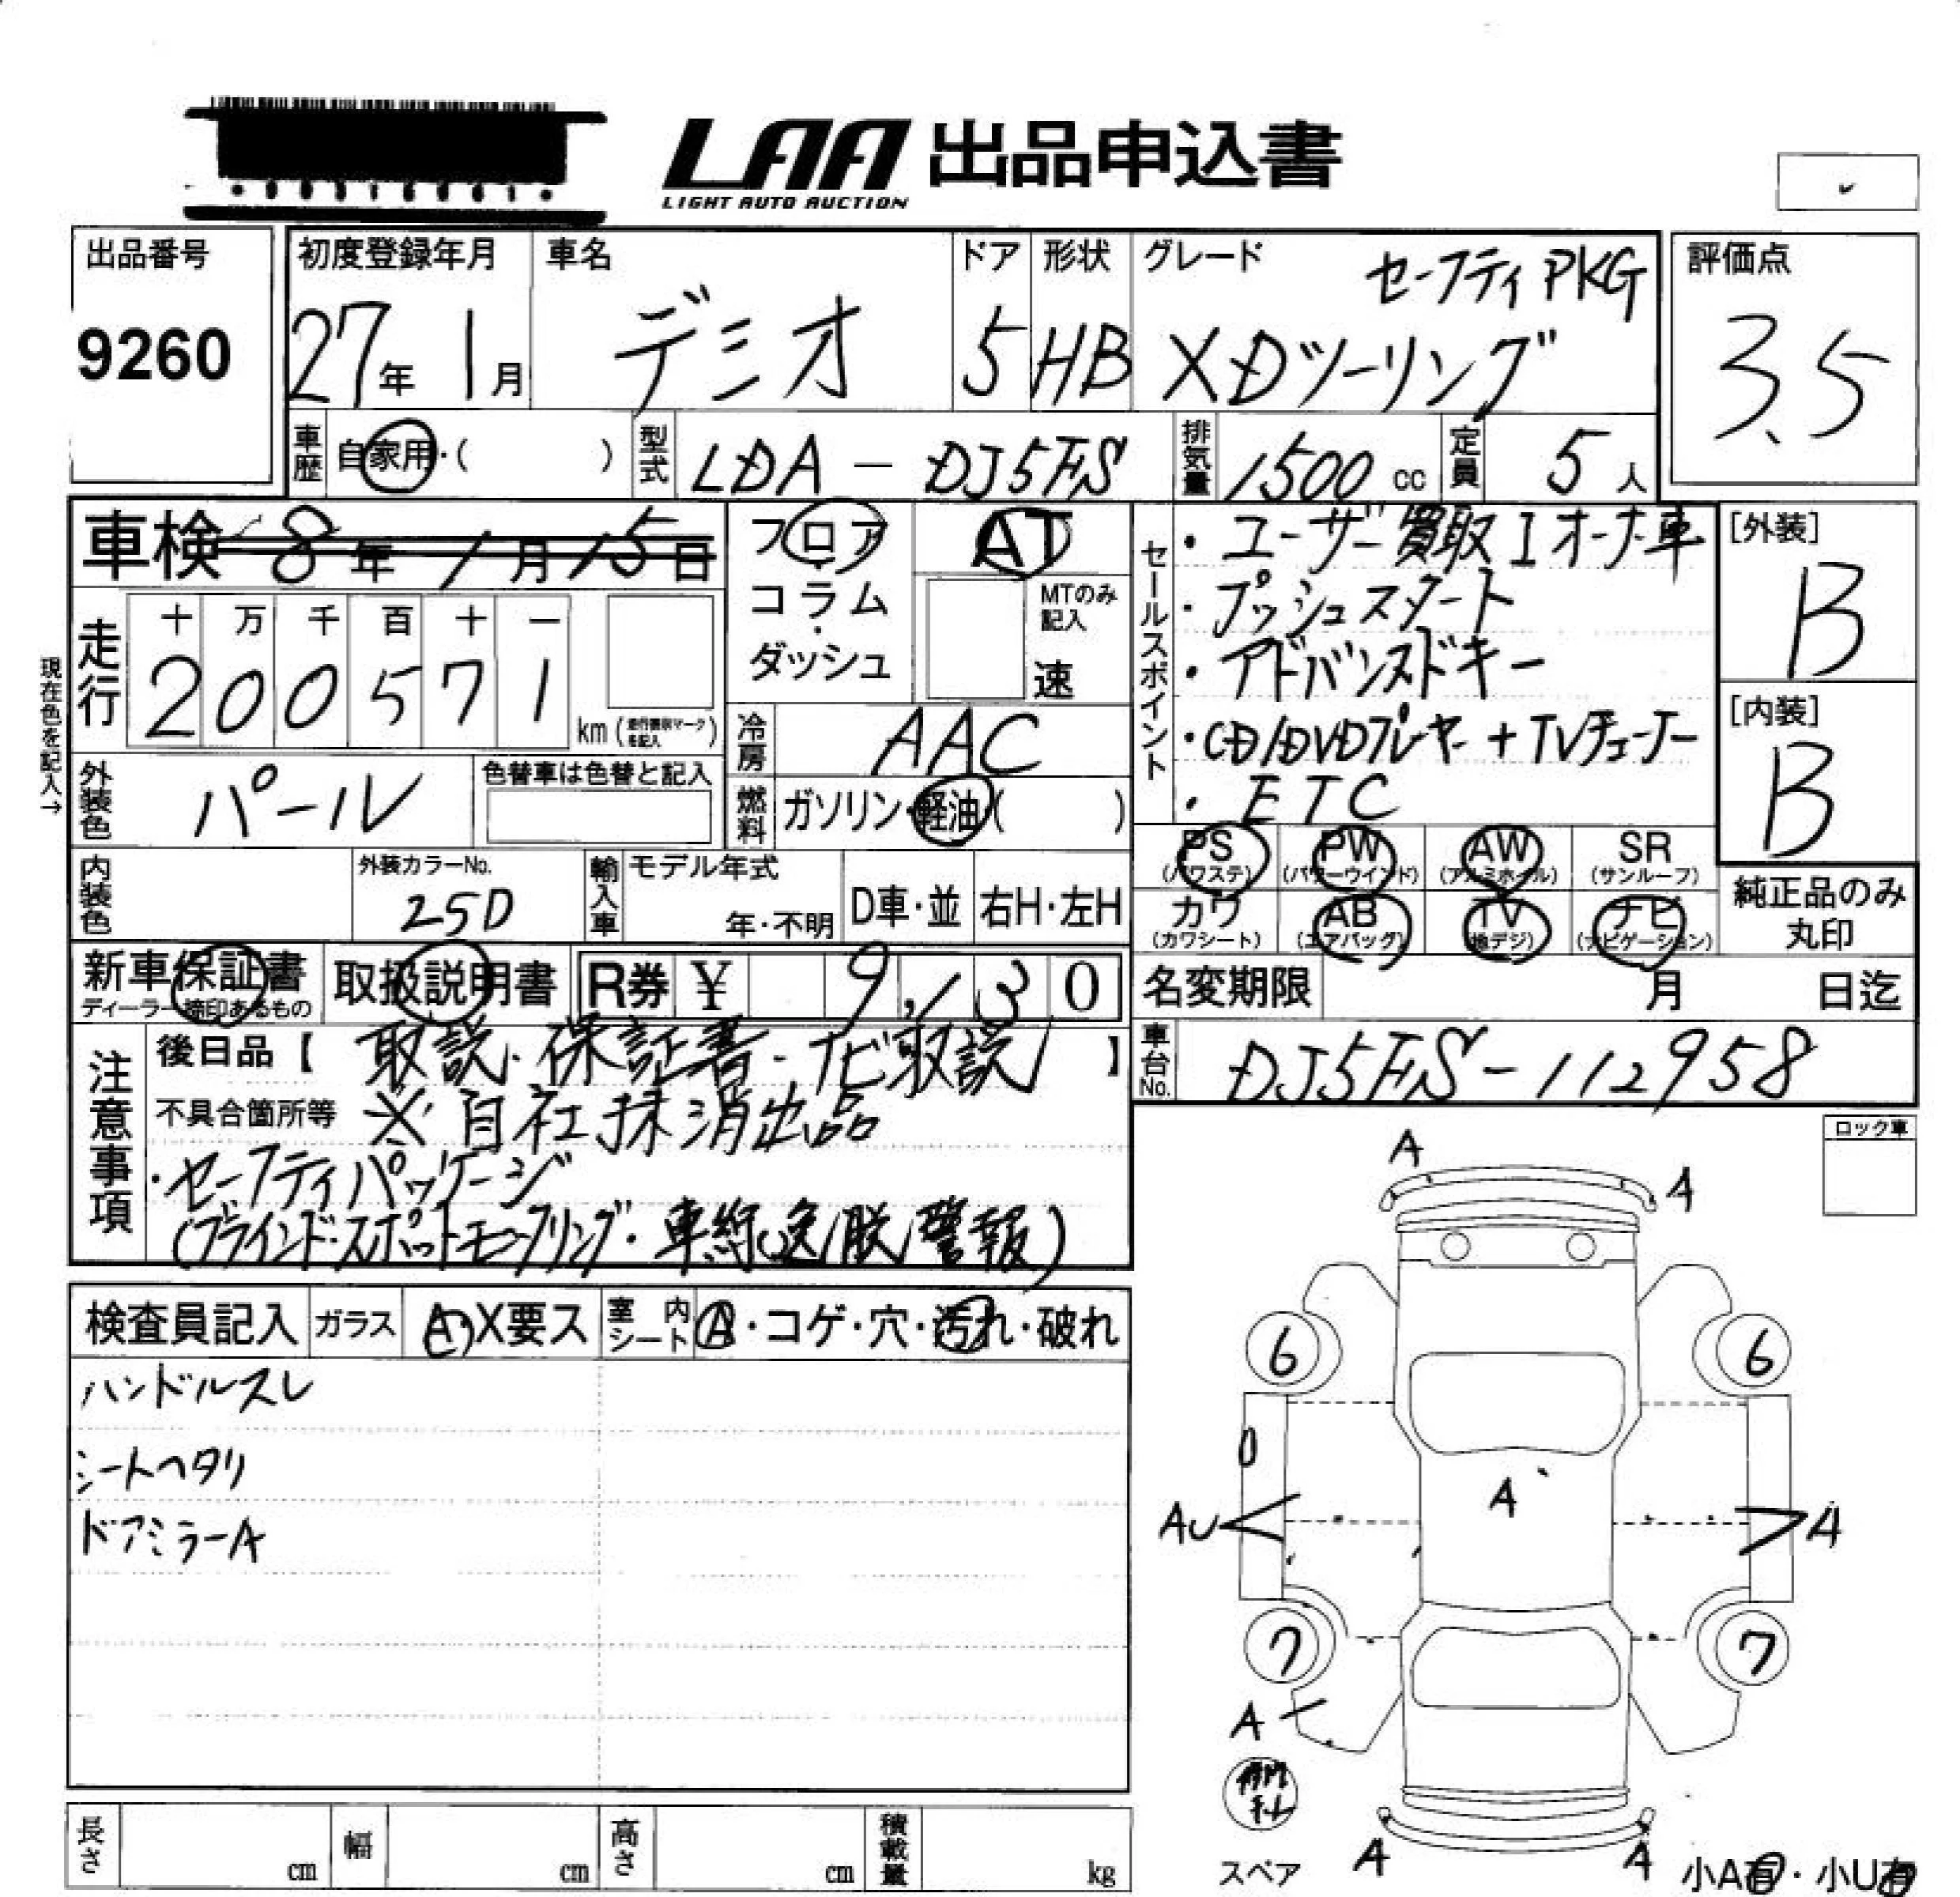 LAA 出品申込書
LIGHT AUTO AUCTION
出品番号
9260
初度登録年月
27年 1月
車名
デミオ
ドア
5
形状
HB
グレード
セーフティPKG
XDツーリング
評価点
3.5
車歴 自家用・( )
型式 LDA - DJ5FS
排気量 1500 cc
定員 5 人
車検 8年 1月 15日
フロア
コラム
・
ダッシュ
AT
MTのみ記入
速
現在色を記入→
走行
十 万 千 百 十 一
2 0 0 5 7 1
km (走行不明マークを記入)
冷房 AAC
燃料 ガソリン・軽油( )
外装色 パール
色替車は色替と記入
内装色
外装カラーNo.
25D
輸入車
モデル年式
年・不明
D車・並
右H・左H
セールスポイント
・ユーザー買取 1オーナー車
・プッシュスタート
・アドバンスドキー
・CD/DVDプレーヤー+TVチューナー
・ETC
[外装]
B
[内装]
B
PS (パワステ)
PW (パワーウインド)
AW (アルミホイル)
SR (サンルーフ)
カワ (カワシート)
AB (エアバッグ)
TV (地デジ)
ナビ (ナビゲーション)
純正品のみ
丸印
新車保証書
ディーラー締印あるもの
取扱説明書
R券 ¥ 9,130
名変期限 月 日迄
車台No. DJ5FS-112958
注意事項
後日品【取説・保証書・ナビ取説】
不具合箇所等 ※自社抹消出品
・セーフティパッケージ
(ブラインド・スポットモニタリング・車線逸脱警報)
ロック車
検査員記入
ガラス A・X要ス
室内シート A・コゲ・穴・汚れ・破れ
ハンドルスレ
シートヘタリ
ドアミラーA
A
A
6
6
A
AU
A
7
7
A
スペア
A
A
小A有・小U有
長さ cm
幅 cm
高さ cm
積載量 kg